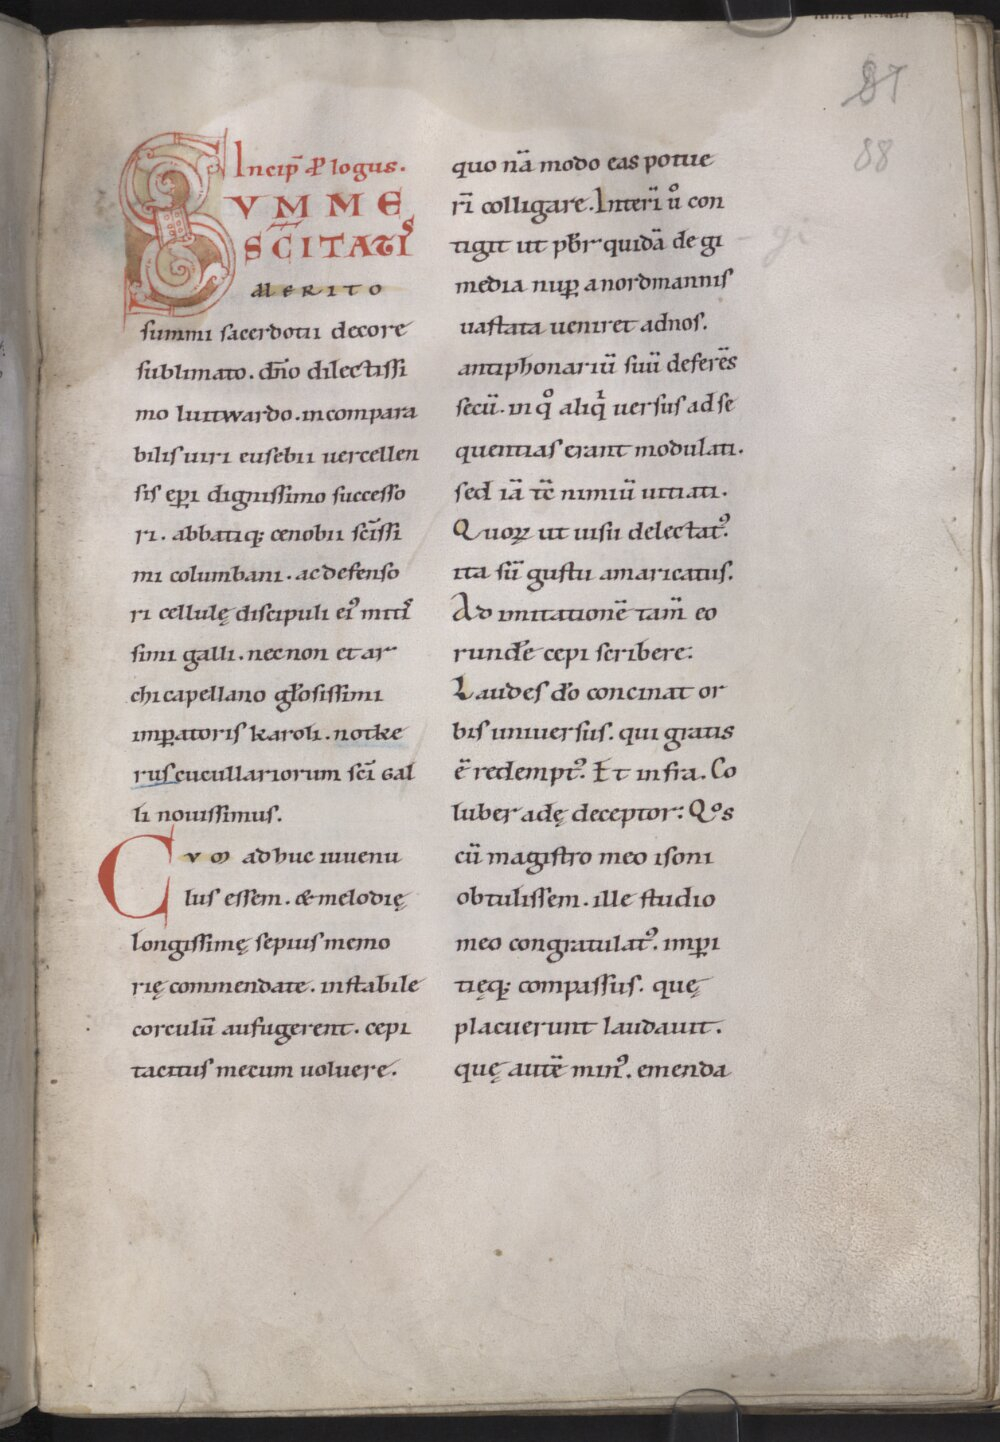 87
88
Incip̄ ꝓlogus.
SVMME
SC̄ITATIˢ
MERITO
summi sacerdotii decore
sublimato. dn̄o dilectissi
mo luitwardo. incompara
bilis uiri eusebii uercellen
sis ep̄i dignissimo successo
ri. abbatiq; cenobii sc̄issi
mi columbani. ac defenso
ri cellulę discipuli ei᾿ mitis
simi galli. necnon et ar
chicapellano gl̄osissimi
imꝑatoris karoli. notke
rus cucullariorum sc̄i Gal
li nouissimus.
CVM adhuc iuuenu
lus essem. & melodię
longissimę sepius memo
rię commendate. instabile
corculū aufugerent. cepi
tacitus mecum uoluere.
quo nā modo eas potue
rī colligare. Interī ů con
tigit ut pb̄r quidā de gi
media nuꝑ a nordmannis
uastata ueniret ad nos.
antiphonariū suū deferēs
secū. in qͦ aliqⁱ uersus ad se
quentias erant modulati.
sed iā tc̄ nimiū uitiati.
Quoꝝ ut uisu delectat᾿.
ita sū gustu amaricatus.
Ad imitationē tam̄ eo
rundē cepi scribere:
Laudes do̅ concinat or
bis uniuersus. qui gratis
ē redempt᾿. Et infra. Co
luber adę deceptor: Qͦs
cū magistro meo isoni
obtulissem. ille studio
meo congratulat᾿. imꝑi
tięq; compassus. quę
placuerunt laudauit.
quę autē min᾿. emenda